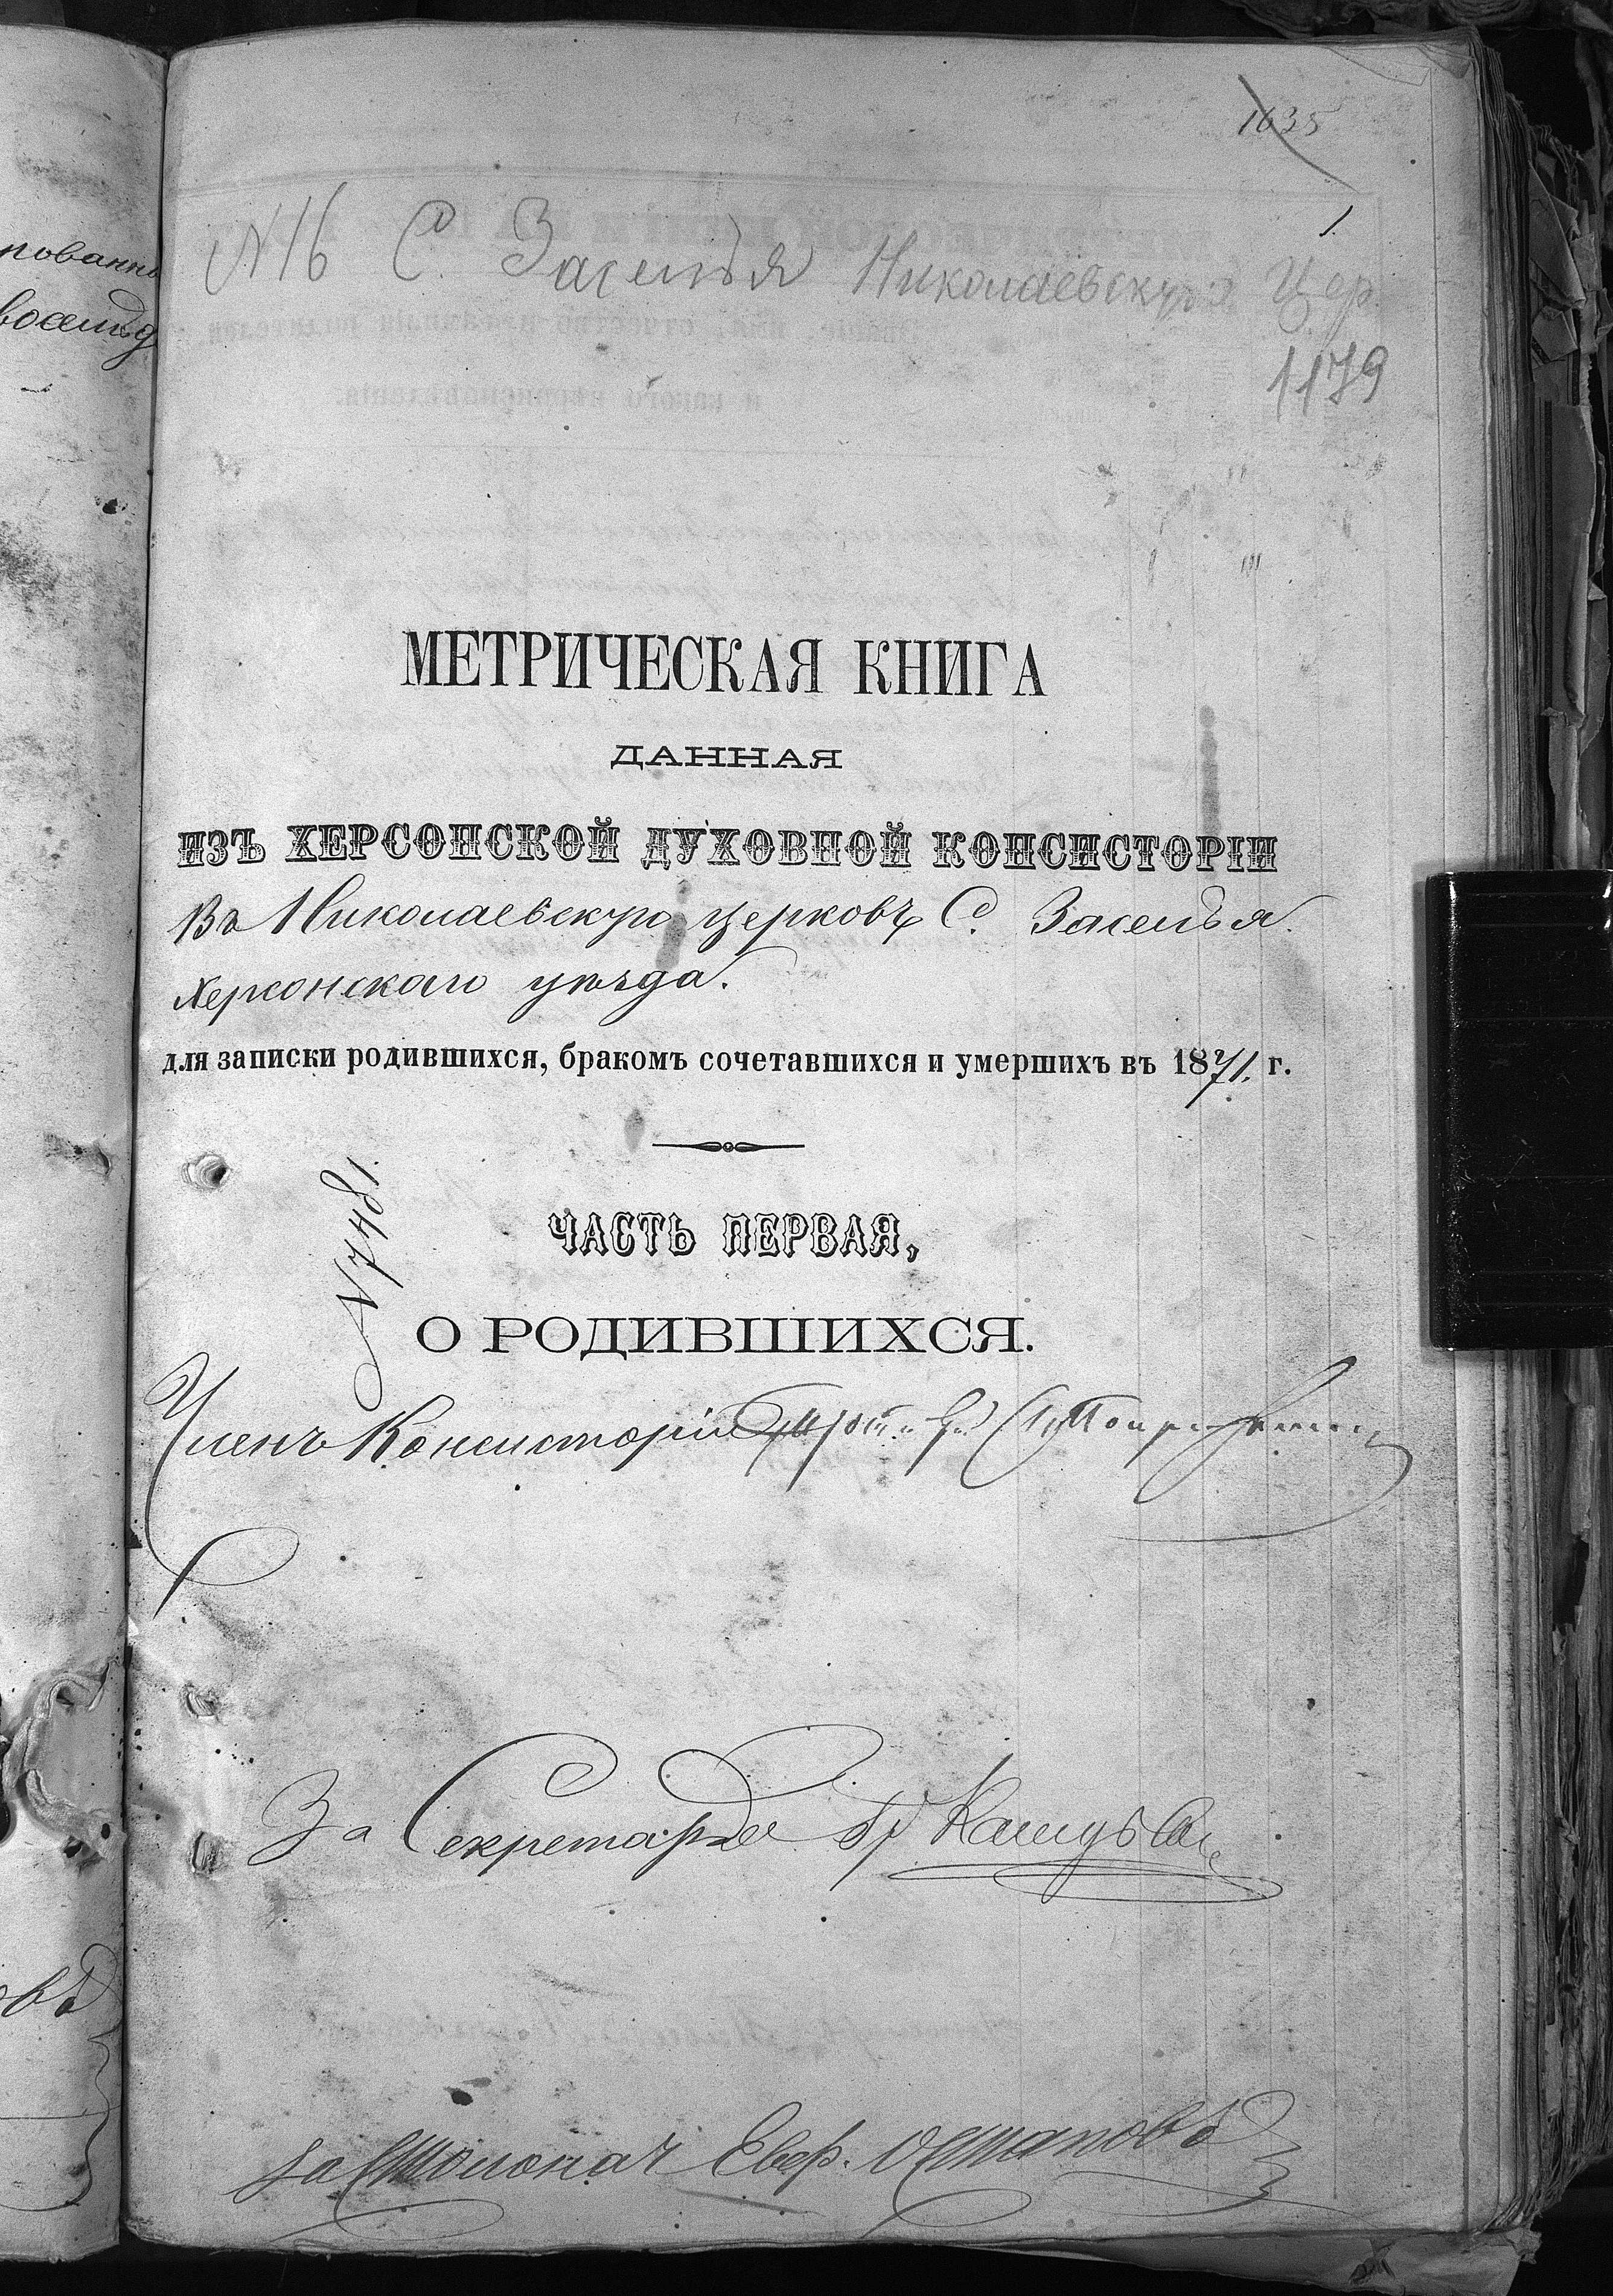 1635
1.
N16 С. Заселья Николаевскую Цер.
1179
пованны
МЕТРИЧЕСКАЯ КНИГА
ДАННАЯ
ИЗЪ ХЕРСОНСКОЙ ДУХОВНОЙ КОНСИСТОРІИ
Въ Николаевскую церковъ С. Заселья
Херсонскаго уѣзда.
для записки родившихся, бракомъ сочетавшихся и умершихъ въ 1871. г.
N 7481.
ЧАСТЬ ПЕРВАЯ,
О РОДИВШИХСЯ.
Членъ Консисторіи
За Секретаря
за Столонач Евф. Остаповъ